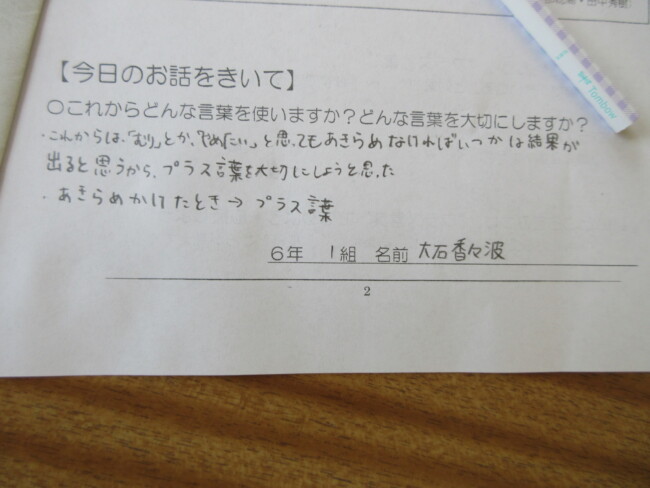 【今日のお話をきいて】
○これからどんな言葉を使いますか？どんな言葉を大切にしますか？
・これからは、「むり」とか、「やめたい」と思ってもあきらめなければいつかは結果が
出ると思うから、プラス言葉を大切にしようと思った
・あきらめかけたとき→プラス言葉
6年 1組 名前 大石香々波
2
Tombow